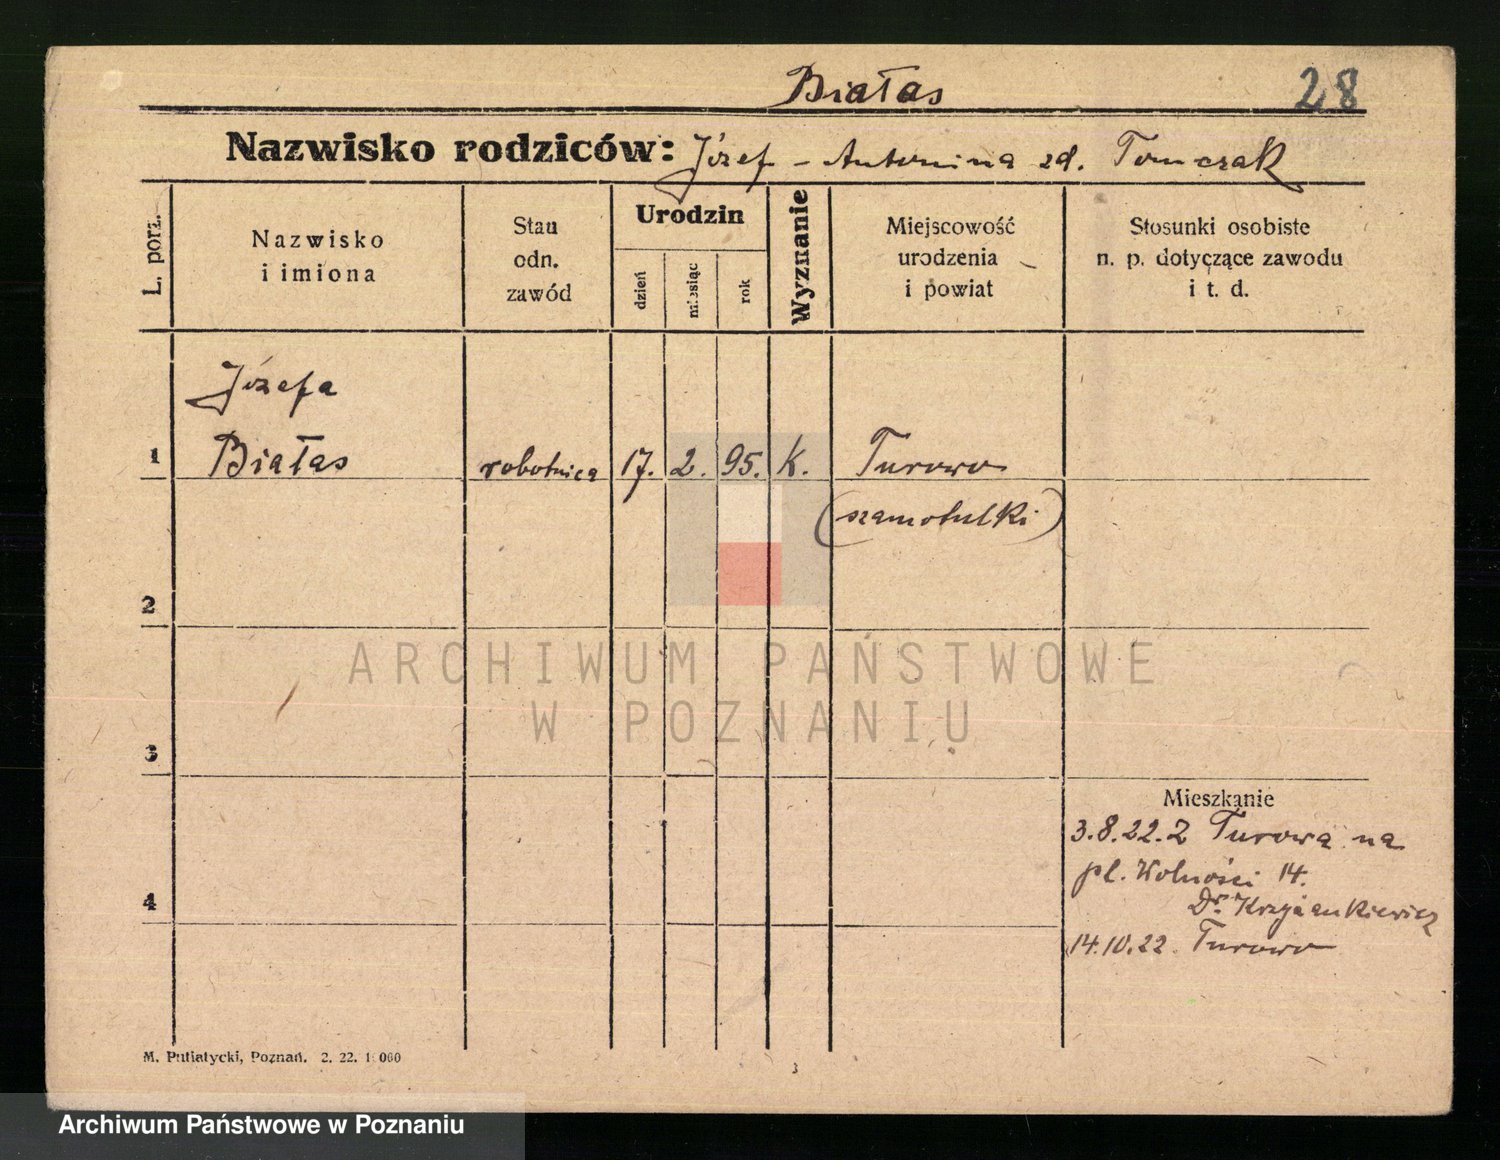 Białas 28
Nazwisko rodziców: Józef - Antonina zd. Tomczak
L. porz.
Nazwisko
i imiona
Stan
odn.
zawód
Urodzin
dzień
miesiąc
rok
Wyznanie
Miejscowość
urodzenia
i powiat
Stosunki osobiste
n. p. dotyczące zawodu
i t. d.
Józefa
1 Białas robotnica 17. 2. 95. K. Turowo
(szamotulki)
2
ARCHIWUM PAŃSTWOWE
W POZNANIU
3
Mieszkanie
3.8.22. Z Turowa na
pl. Wolności 14.
4
Dr. Krzyżankiewicz
14.10.22. Turowo
M. Putiatycki, Poznań. 2. 22. 1 000
3
Archiwum Państwowe w Poznaniu